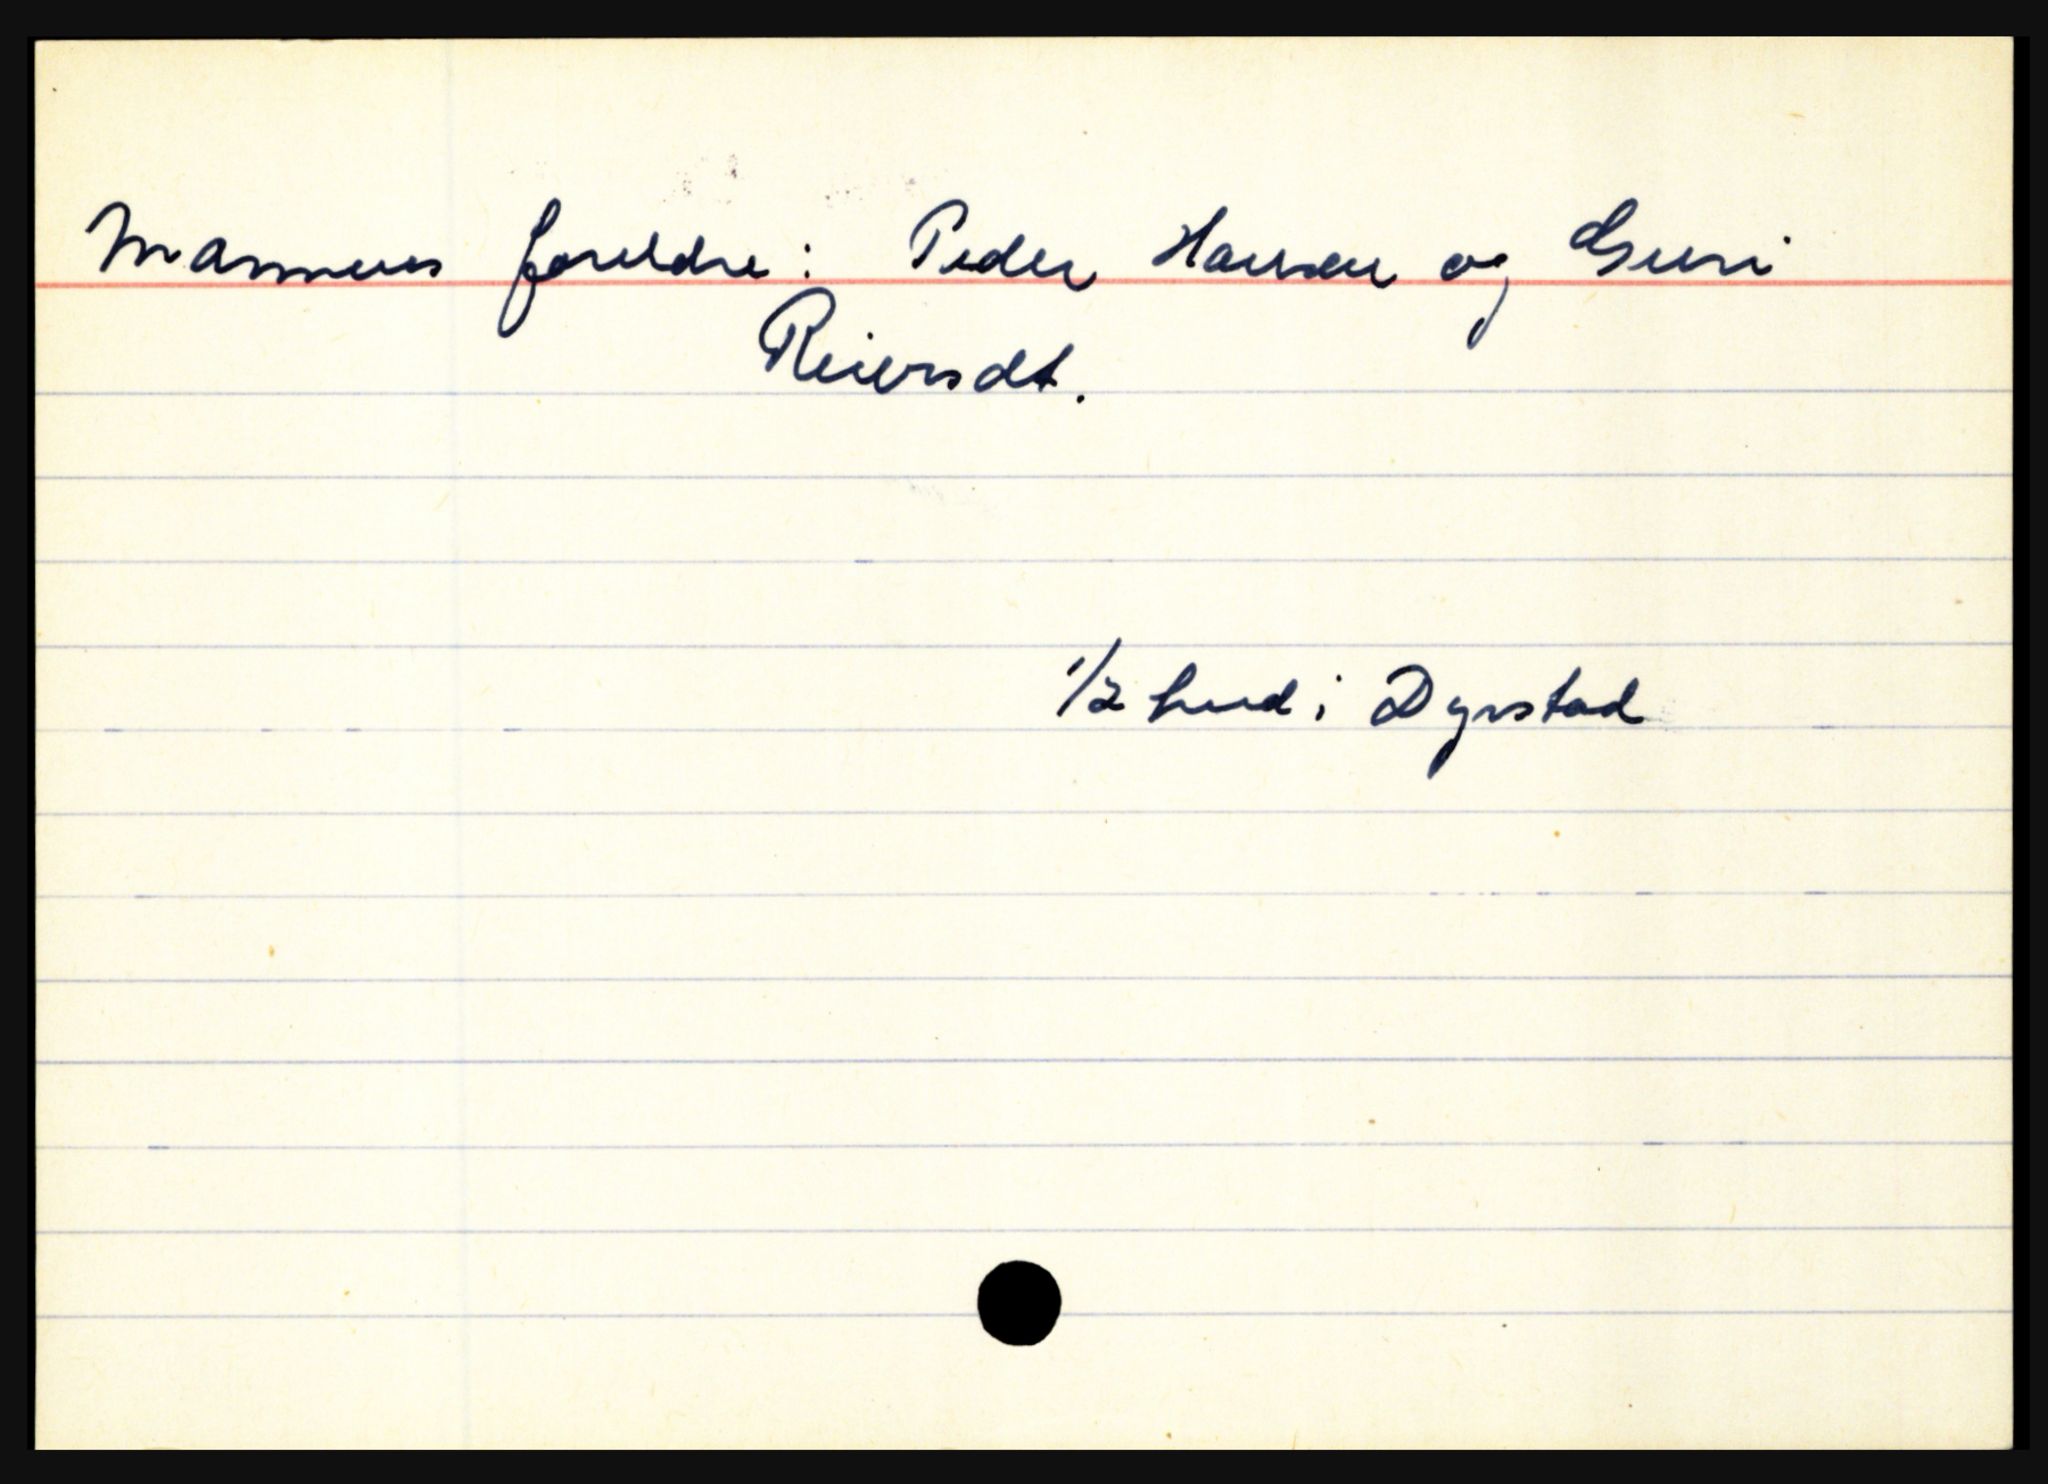 Mannens foreldre: Peder Hansen og Guri
Reiersdt.
1/2 hud i Dyrstad